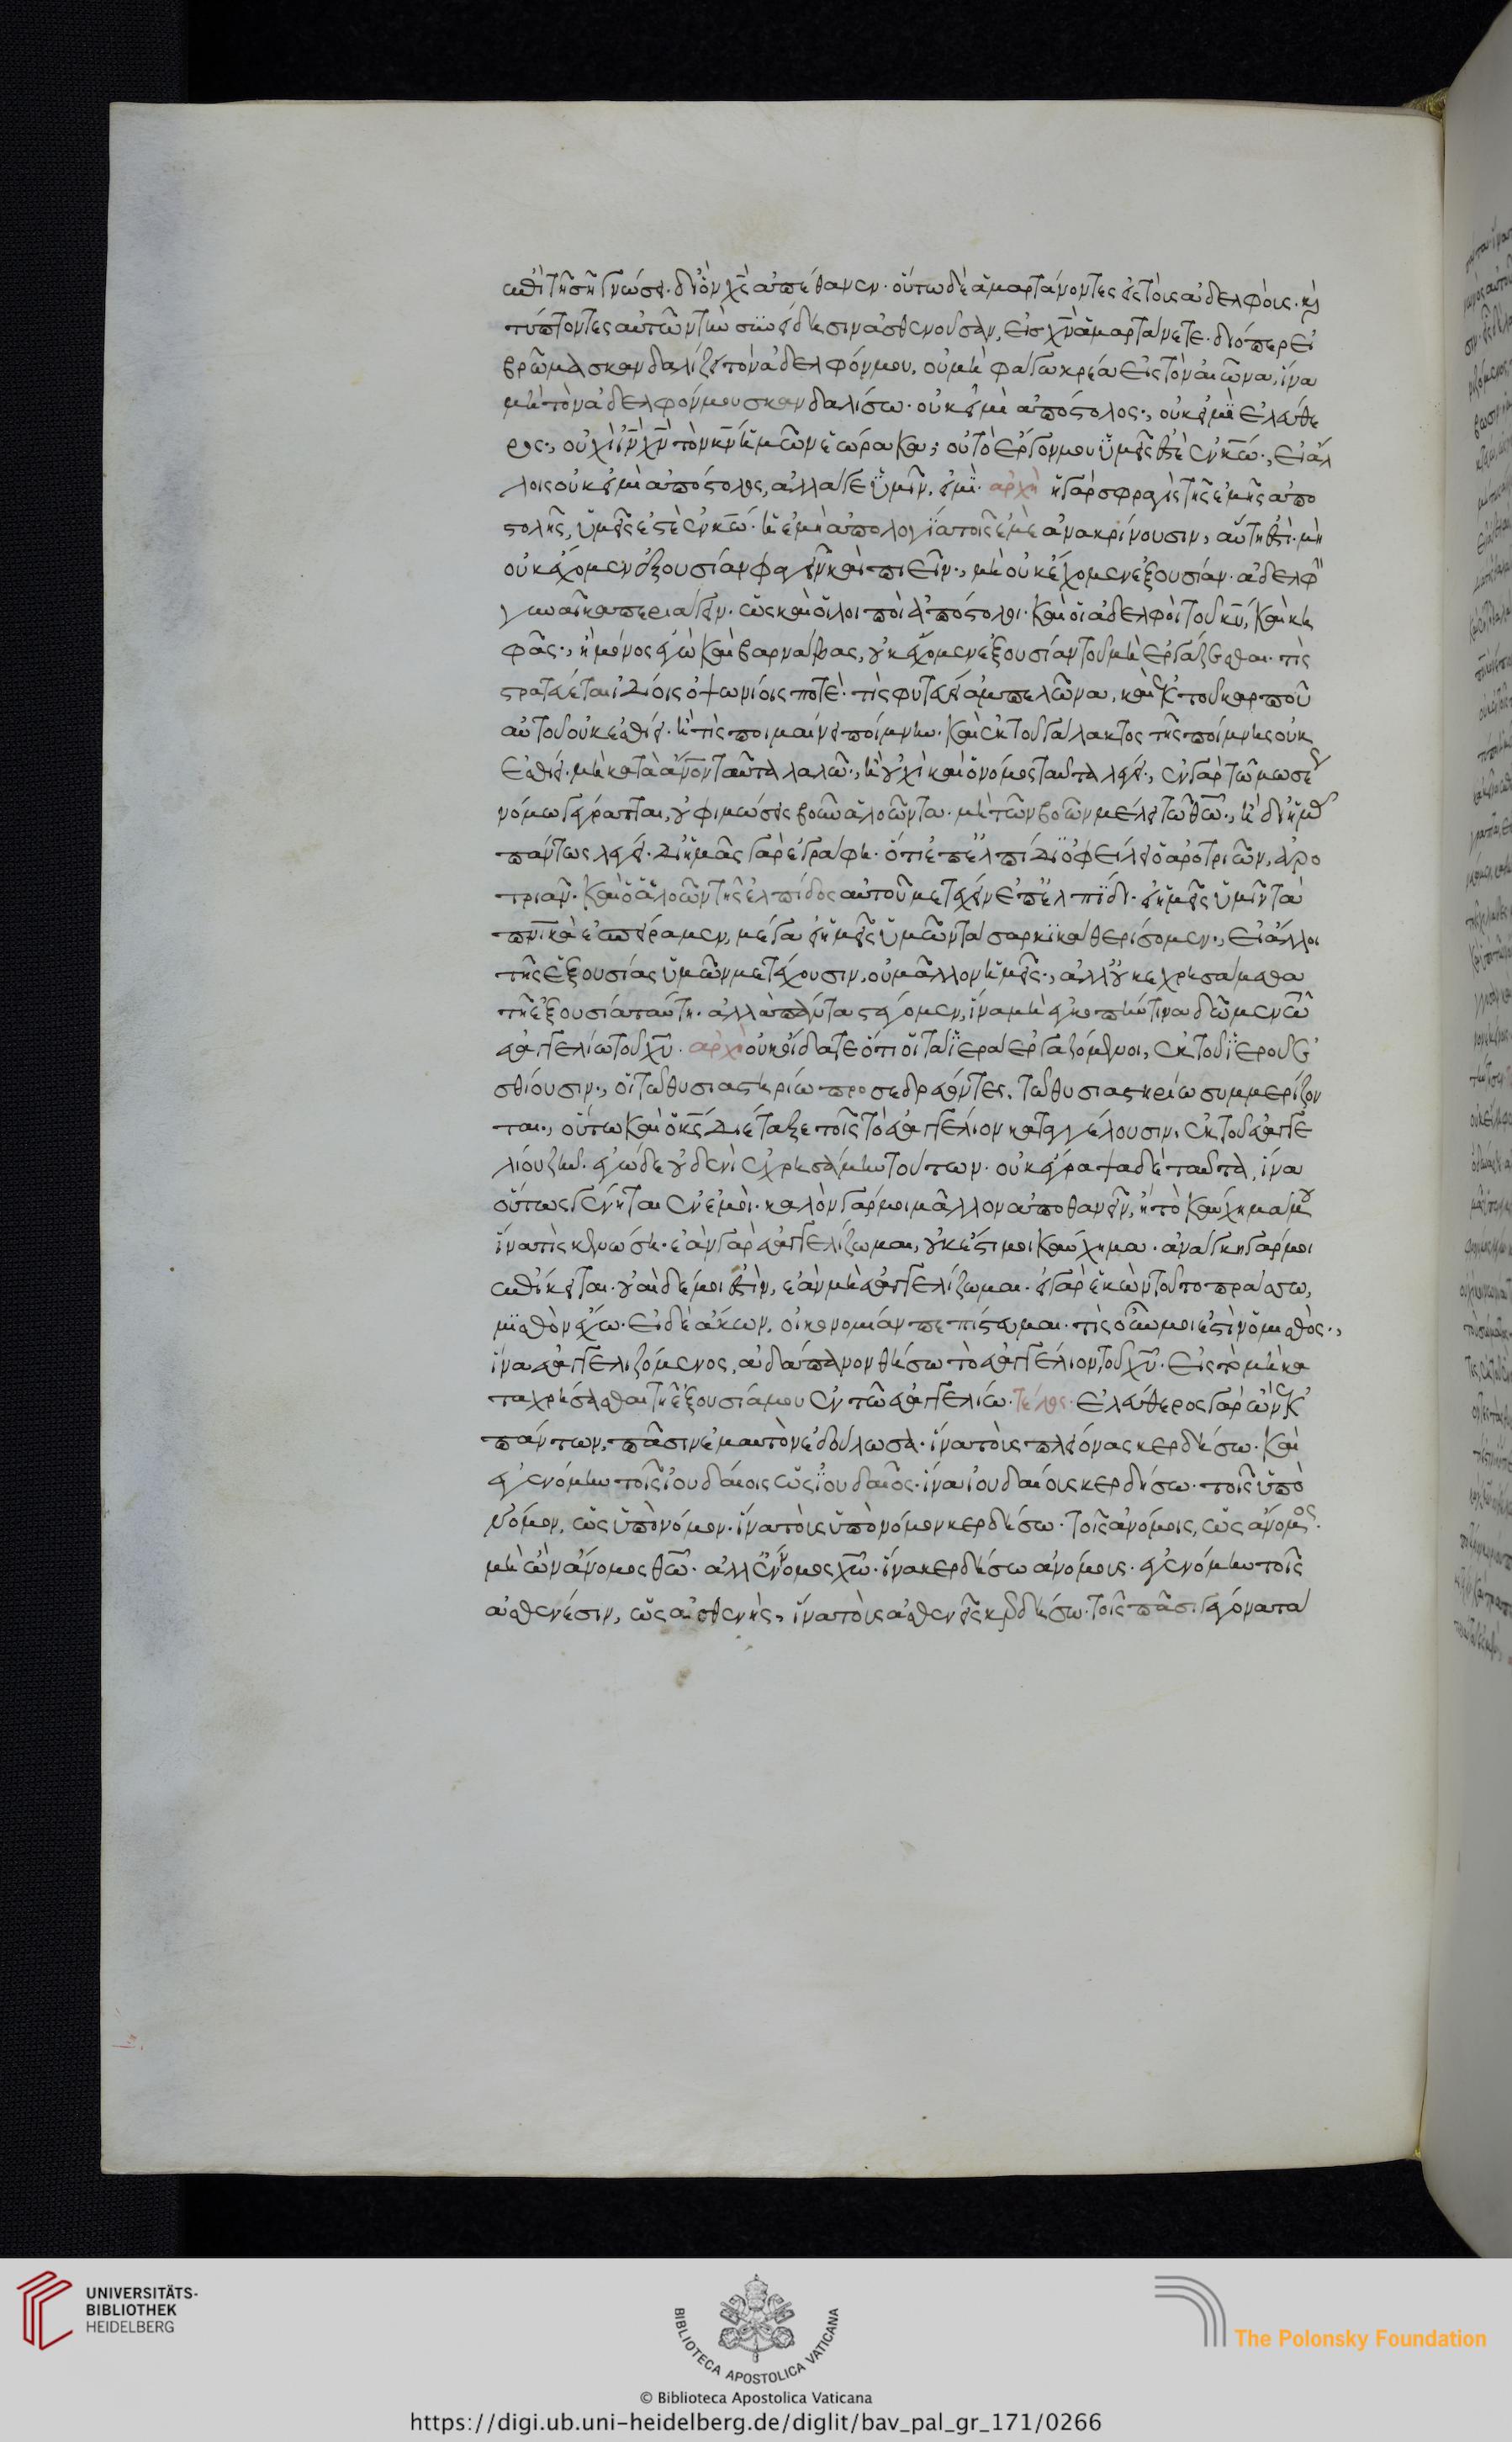 ἐπὶ τῆ σῆ γνώσει· δι' ὃν χς ἀπέθανεν· οὕτω δὲ ἁμαρτάνοντες εἰς τοὺς ἀδελφοὺς· κὶ
τύπτοντες αὐτῶν τὴν συνείδησιν ἀσθενοῦσαν, εἰς χν ἁμαρτάνετε· διόπερ εἰ
βρῶμα σκανδαλίζει τὸν ἀδελφόν μου, οὐ μὴ φάγω κρέα εἰς τὸν αἰῶνα, ἵνα
μὴ τὸν ἀδελφόν μου σκανδαλίσω· οὐκ εἰμὶ ἀπόστολος·, οὐκ εἰμὶ ἐλεύθε
ρος·, οὐχὶ ιν χν τὸν κν ἡμῶν ἑώρακα; οὐ τὸ ἔργον μου ὑμεῖς ἐστὲ ἐν κω·, εἰ ἄλ
λοις οὐκ εἰμὶ ἀπόστολος, ἀλλά γε ὑμῖν, εἰμὶ· ἀρχὴ ἡ γὰρ σφραγὶς τῆς ἐμῆς ἀπο
στολῆς, ὑμεῖς ἐστὲ ἐν κω· ἡ ἐμὴ ἀπολογία τοῖς ἐμὲ ἀνακρίνουσιν, αὕτη ἐστὶ· μὴ
οὐκ ἔχομεν ἐξουσίαν φαγεῖν καὶ πιεῖν·, μὴ οὐκ ἔχομεν ἐξουσίαν· ἀδελφὴν
γυναῖκα περιάγειν· ὡς καὶ οἱ λοιποὶ ἀπόστολοι· καὶ οἱ ἀδελφοὶ τοῦ κυ, καὶ κη
φᾶς·, ἢ μόνος ἐγὼ καὶ βαρνάβας, οὐκ ἔχομεν ἐξουσίαν τοῦ μὴ ἐργάζεσθαι· τίς
στρατεύεται ἰδίοις ὀψωνίοις ποτὲ· τίς φυτεύει ἀμπελῶνα, καὶ ἐκ τοῦ καρποῦ
αὐτοῦ οὐκ ἐσθίει· ἢ τίς ποιμαίνει ποίμνην· καὶ ἐκ τοῦ γάλακτος τῆς ποίμνης οὐκ
ἐσθίει· μὴ κατὰ ἄνον ταῦτα λαλῶ·, ἢ οὐχὶ καὶ ὁ νόμος ταῦτα λέγει·, ἐν γὰρ τῶ μωσέως
νόμω γέγραπται, οὐ φιμώσεις βοῦν ἀλοῶντα· μὴ τῶν βοῶν μέλει τῶ θω·, ἢ δι' ἡμᾶς
πάντως λέγει· δι' ἡμᾶς γὰρ ἐγράφη· ὅτι ἐπ' ἐλπίδι ὀφείλει ὁ ἀροτριῶν, ἀρο
τριᾶν· καὶ ὁ ἀλοῶν τῆς ἐλπίδος αὐτοῦ μετέχειν ἐπ' ἐλπίδι· εἰ ἡμεῖς ὑμῖν τὰ
πνικὰ ἐσπείραμεν, μέγα εἰ ἡμεῖς ὑμῶν τὰ σαρκικὰ θερίσομεν·, εἰ ἄλλοι
τῆς ἐξουσίας ὑμῶν μετέχουσιν, οὐ μᾶλλον ἡμεῖς·, ἀλλ' οὐκ ἐχρησάμεθα
τῆ ἐξουσία ταύτη· ἀλλὰ πάντα στέγομεν, ἵνα μὴ ἐγκοπήν τινα δῶμεν τῶ
εὐαγγελίω τοῦ χυ· ἀρχὴ οὐκ οἴδατε ὅτι οἱ τὰ ἱερὰ ἐργαζόμενοι, ἐκ τοῦ ἱεροῦ ἐ
σθίουσιν·, οἱ τῶ θυσιαστηρίω προσεδρεύοντες, τῶ θυσιαστηρίω συμμερίζον
ται·, οὕτω καὶ ὁ κς διέταξε τοῖς τὸ εὐαγγέλιον καταγγέλουσιν, ἐκ τοῦ εὐαγγε
λίου ζῆν· ἐγὼ δὲ οὐδενὶ ἐχρησάμην τούτων· οὐκ ἔγραψα δὲ ταῦτα, ἵνα
οὕτως γένηται ἐν ἐμοὶ· καλὸν γάρ μοι μᾶλλον ἀποθανεῖν, ἢ τὸ καύχημά μου
ἵνα τὶς κενώση· ἐὰν γὰρ εὐαγγελίζωμαι, οὐκ ἔστι μοι καύχημα· ἀνάγκη γάρ μοι
ἐπίκειται· οὐαὶ δέ μοι ἐστὶν, ἐὰν μὴ εὐαγγελίζωμαι· εἰ γὰρ ἑκὼν τοῦτο πράσσω,
μισθὸν ἔχω· εἰ δὲ ἄκων, οἰκονομίαν πεπίστευμαι· τίς οὖν μοι ἐστὶν ὁ μισθὸς·,
ἵνα εὐαγγελιζόμενος, ἀδάπανον θήσω τὸ εὐαγγέλιον τοῦ χυ· εἰς τὸ μὴ κα
ταχρήσασθαι τῆ ἐξουσία μου ἐν τῶ εὐαγγελίω· τέλος· ἐλεύθερος γὰρ ὢν ἐκ
πάντων, πᾶσιν ἐμαυτὸν ἐδούλωσα· ἵνα τοὺς πλείονας κερδήσω· καὶ
ἐγενόμην τοῖς ἰουδαίοις ὡς ἰουδαῖος· ἵνα ἰουδαίους κερδήσω· τοῖς ὑπὸ
νόμον, ὡς ὑπὸ νόμον· ἵνα τοὺς ὑπὸ νόμον κερδήσω· τοῖς ἀνόμοις, ὡς ἄνομος·
μὴ ὢν ἄνομος θω· ἀλλ' ἔννομος χω· ἵνα κερδήσω ἀνόμους· ἐγενόμην τοῖς
ἀσθενέσιν, ὡς ἀσθενὴς, ἵνα τοὺς ἀσθενεῖς κερδήσω· τοῖς πᾶσι γέγονα τὰ
UNIVERSITÄTS-
BIBLIOTHEK
HEIDELBERG
BIBLIOTECA APOSTOLICA VATICANA
The Polonsky Foundation
© Biblioteca Apostolica Vaticana
https://digi.ub.uni-heidelberg.de/diglit/bav_pal_gr_171/0266